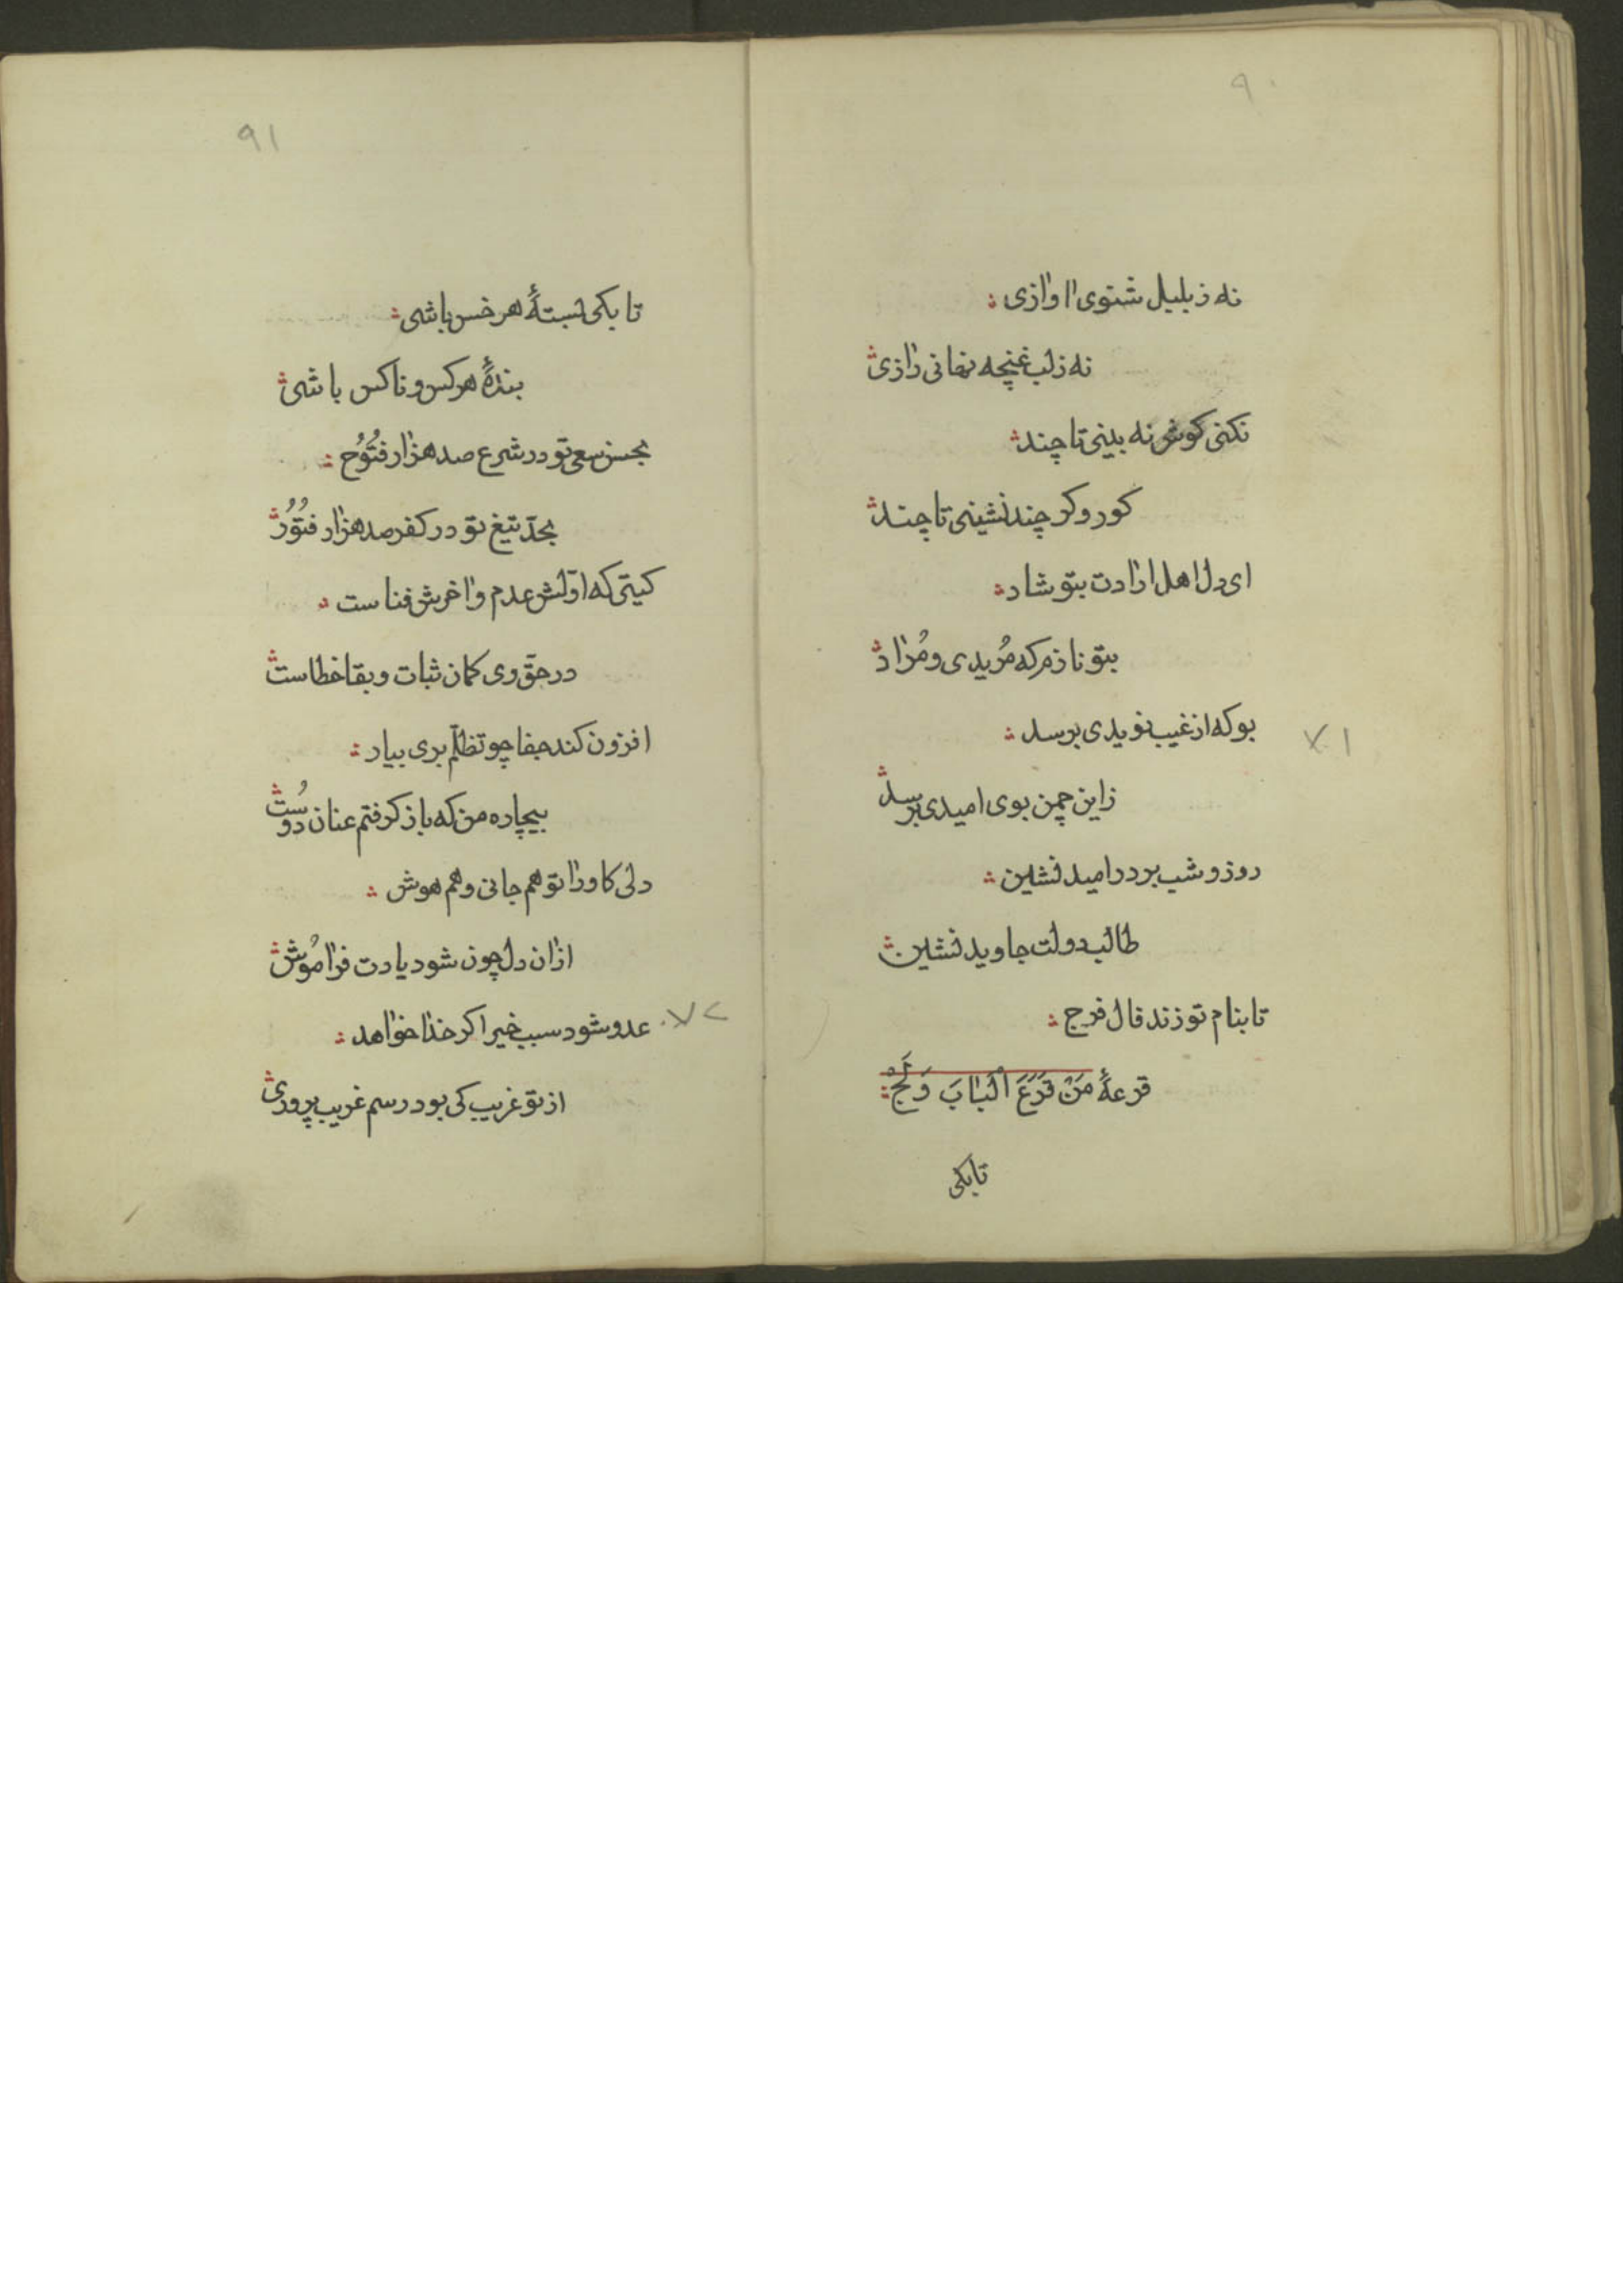 ۹۰
نه ز بلبل شنوی اوازی
نه ز لب غنچه نهانی رازی
نکنی کوش نه بینی تا چند
کور و کر چند نشینی تا چند
ای دل اهل ارادت بتو شاد
بتو نازم که مُریدی و مُراد
بوکه از غیب نویدی برسد
۷۱
زاین چمن بوی امیدی برسد
روز و شب بر در امید نشین
طالب دولت جاوید نشین
تا بنام تو زند فال فرج
قرعهٔ مَنْ قَرَعَ الْبَابَ وَلَجَ
تابکی
۹۱
تا بکی بستهٔ هر خس باشی
بندهٔ هر کس و ناکس باشی
بحسن سعی تو در شرع صد هزار فتُوُح
بحدّ تیغ تو در کفر صد هزار فتُوُر
کیتی که اوّلش عدم و اخرش فناست
در حقّ وی کمان ثبات و بقا خطاست
افزون کند جفا چو تظلّم بری بیار
بیچاره من که باز کرفتم عنان دوُست
دلی کاورا تو هم جانی و هم هوش
ازان دل چون شود یادت فراموُش
عدو شود سبب خیر اکر خدا خواهد
۷۲
از تو غریب کی بود رسم غریب پروری